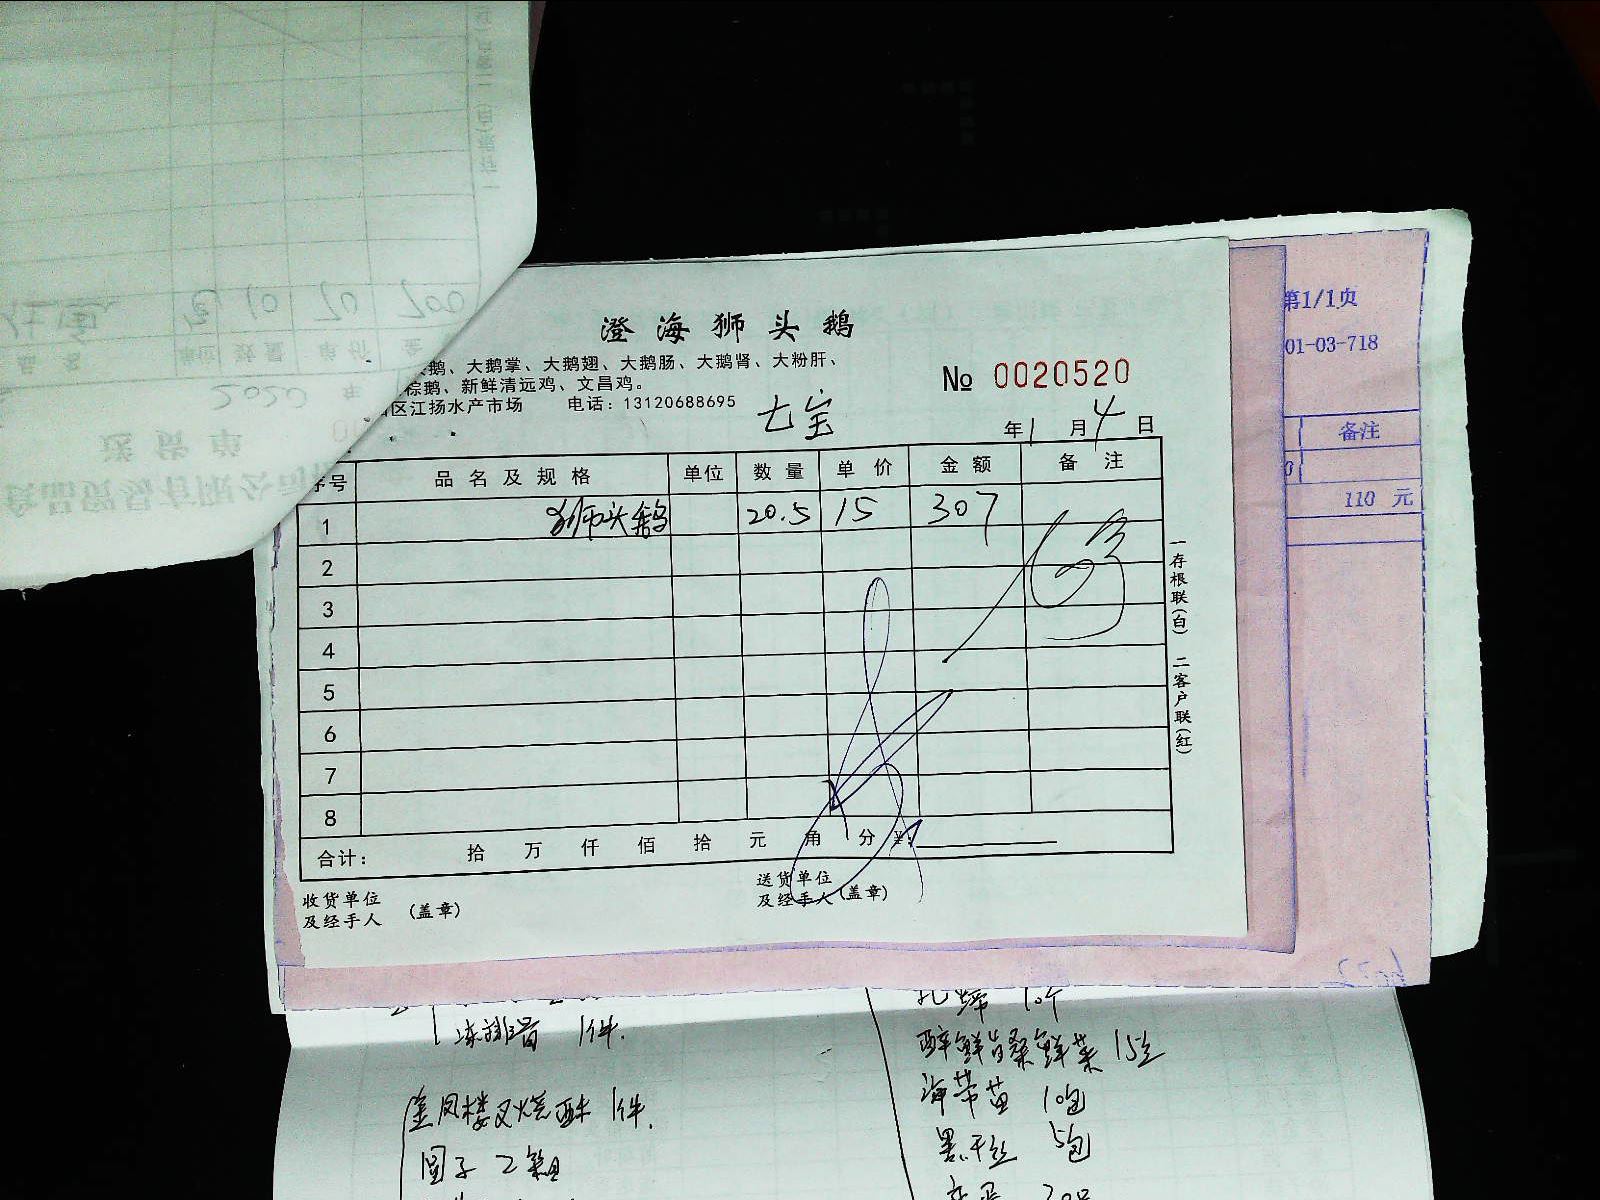 澄海狮头鹅
头鹅、大鹅掌、大鹅翅、大鹅肠、大鹅肾、大粉肝、
棕鹅、新鲜清远鸡、文昌鸡。
区江扬水产市场 电话：13120688695
№ 0020520
七宝
年1月4日
序号 品名及规格 单位 数量 单价 金额 备注
1 狮头鹅 20.5 15 307
2
3
4
5
6
7
8
合计： 拾 万 仟 佰 拾 元 角 分 ¥:
收货单位
及经手人 (盖章)
送货单位
及经手人 (盖章)
一存根联(白) 二客户联(红)
第1/1页
01-03-718
备注
110 元
送货单
2020 年
单位 数量 单价 金
10 70 700
冻排骨 1件.
金凤楼叉烧酥 1件.
圆子 2箱
10个
海带苗 10包
5包